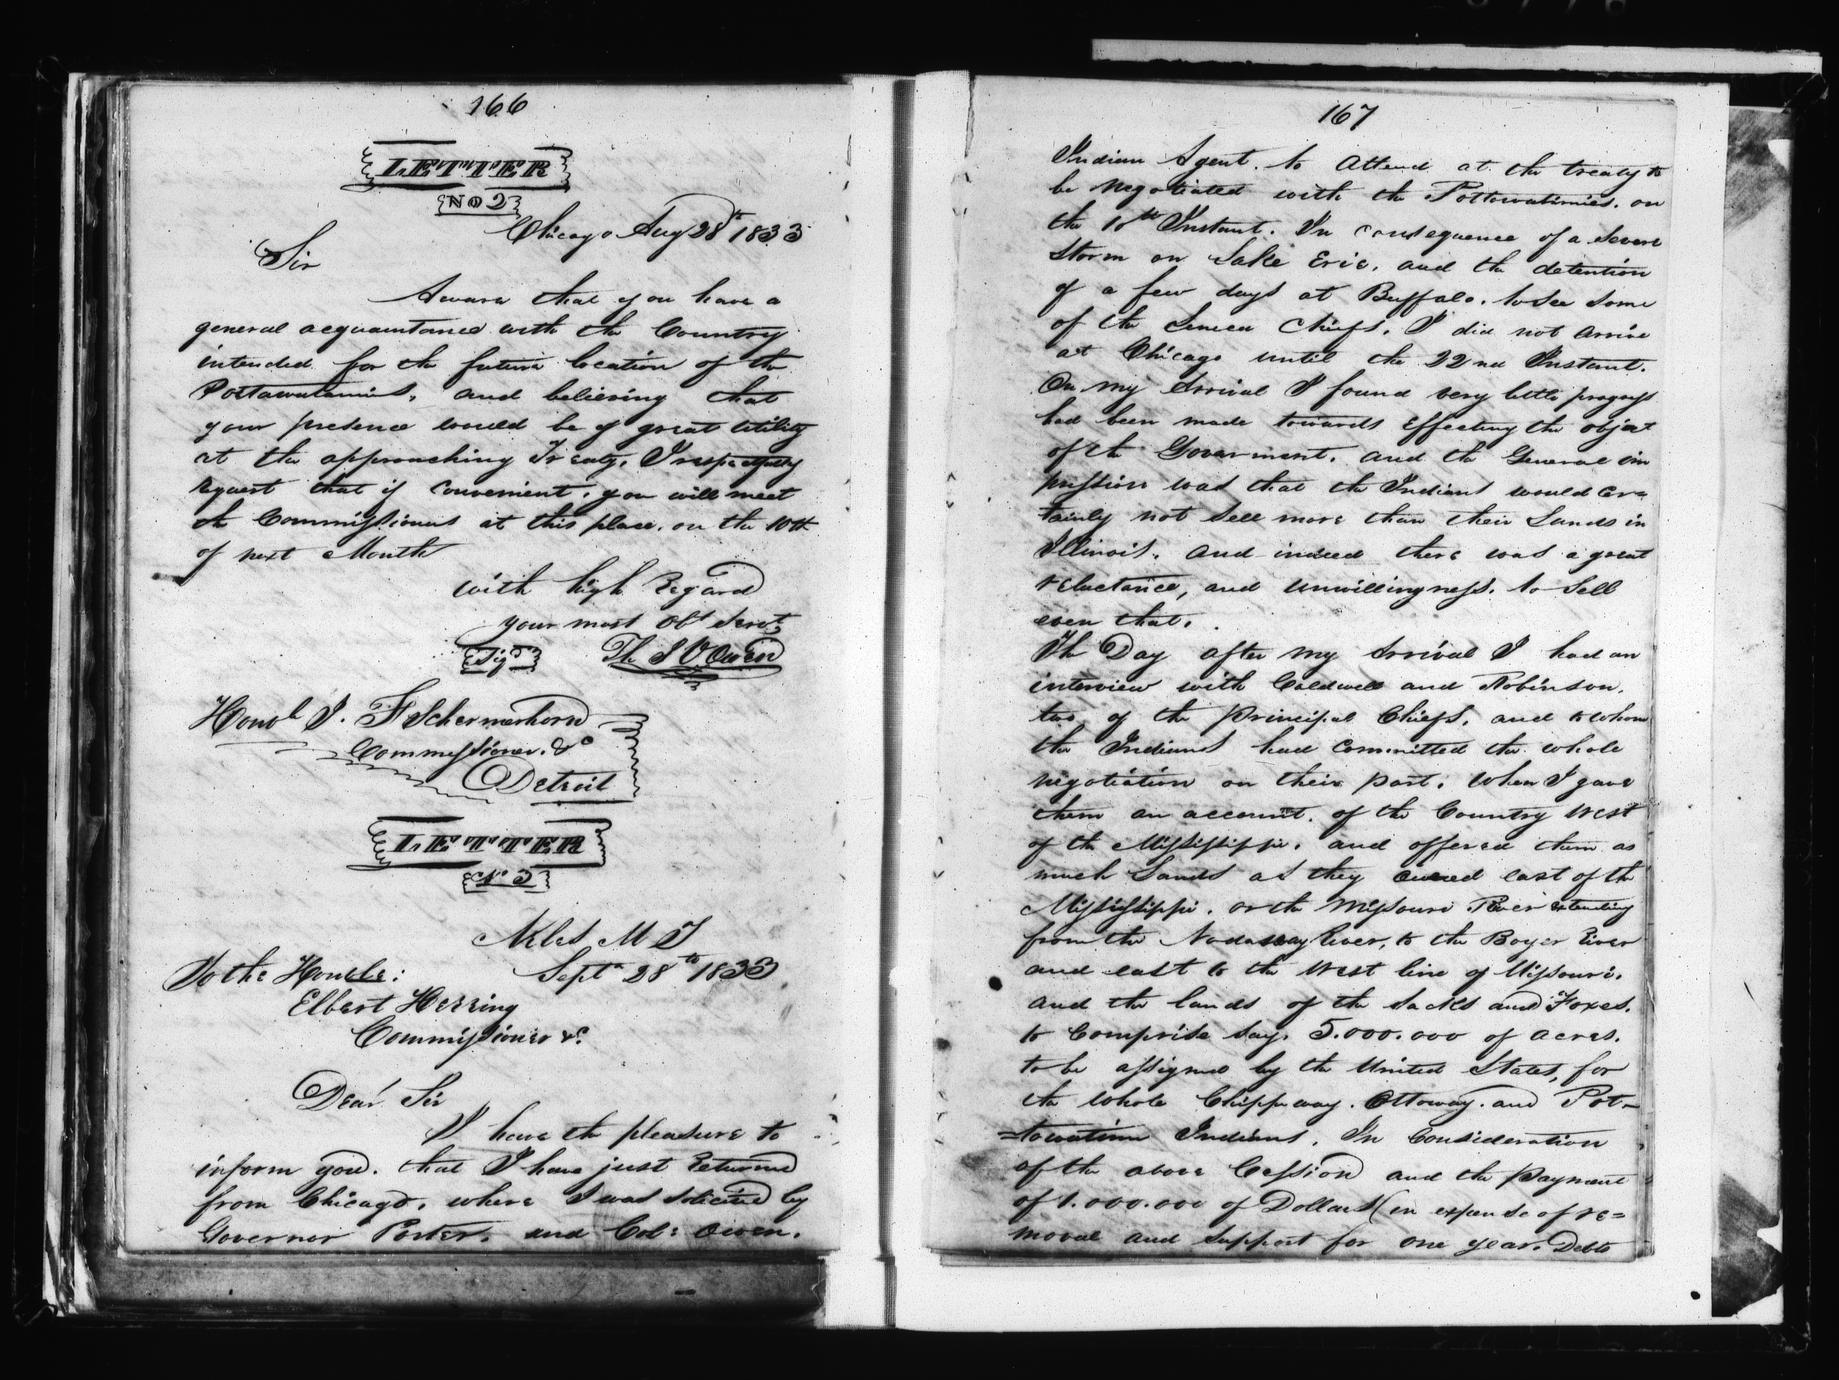 166
LETTER
No 2
Chicago Aug 28th 1833
Sir
Aware that you have a
general acquaintance with the Country
intended for the future location of the
Pottawatamies, and believing that
your presence would be of great utility
at the approaching Treaty, I respectfully
request that if convenient, you will meet
the Commissioners at this place, on the 10th
of next Month
with high Regard
your most Obt Servt
Sigd Th J V Owen
Honbl J. F Schermerhorn
Commissioner &c
Detroit
LETTER
No 3
Niles M T
To the Honble: Sept 28th 1833
Elbert Herring
Commissioner &c
Dear Sir
I have the pleasure to
inform you, that I have just Returned
from Chicago, where I was solicited by
Governor Porter, and Col: Owen,
167
Indian Agent, to attend at the treaty to
be negotiated with the Pottowatimies, on
the 10th Instant. In consequence of a severe
Storm on Lake Erie, and the detention
of a few days at Buffalo, to see some
of the Seneca Chiefs, I did not arrive
at Chicago until the 22nd Instant.
On my Arrival I found very little progress
had been made towards Effecting the object
of the Goverment, and the General im
pression was that the Indians would Cer=
tainly not sell more than their Lands in
Illinois, and indeed there was a great
reluctance, and unwillingness, to sell
even that.
The Day after my Arrival I had an
interview with Caldwell and Robinson,
two of the principal Chiefs, and to whom
the Indians had committed the whole
negotiation on their part, when I gave
them an account, of the Country West
of the Mississippi, and offered them as
much Lands as they owned east of the
Mississippi, on the Missouri River Extending
from the Nodaway River, to the Boyer River
and east to the West line of Missouri,
and the lands of the Sacks and Foxes,
to Comprise say, 5.000.000 of acres,
to be assigned by the United States, for
the whole Chippeway, Ottoway, and Pot=
=towatimie Indians, In Consideration
of the above Cession and the payment
of 1.000.000 of Dollars (in expense of re=
moval and support for one year, Debts